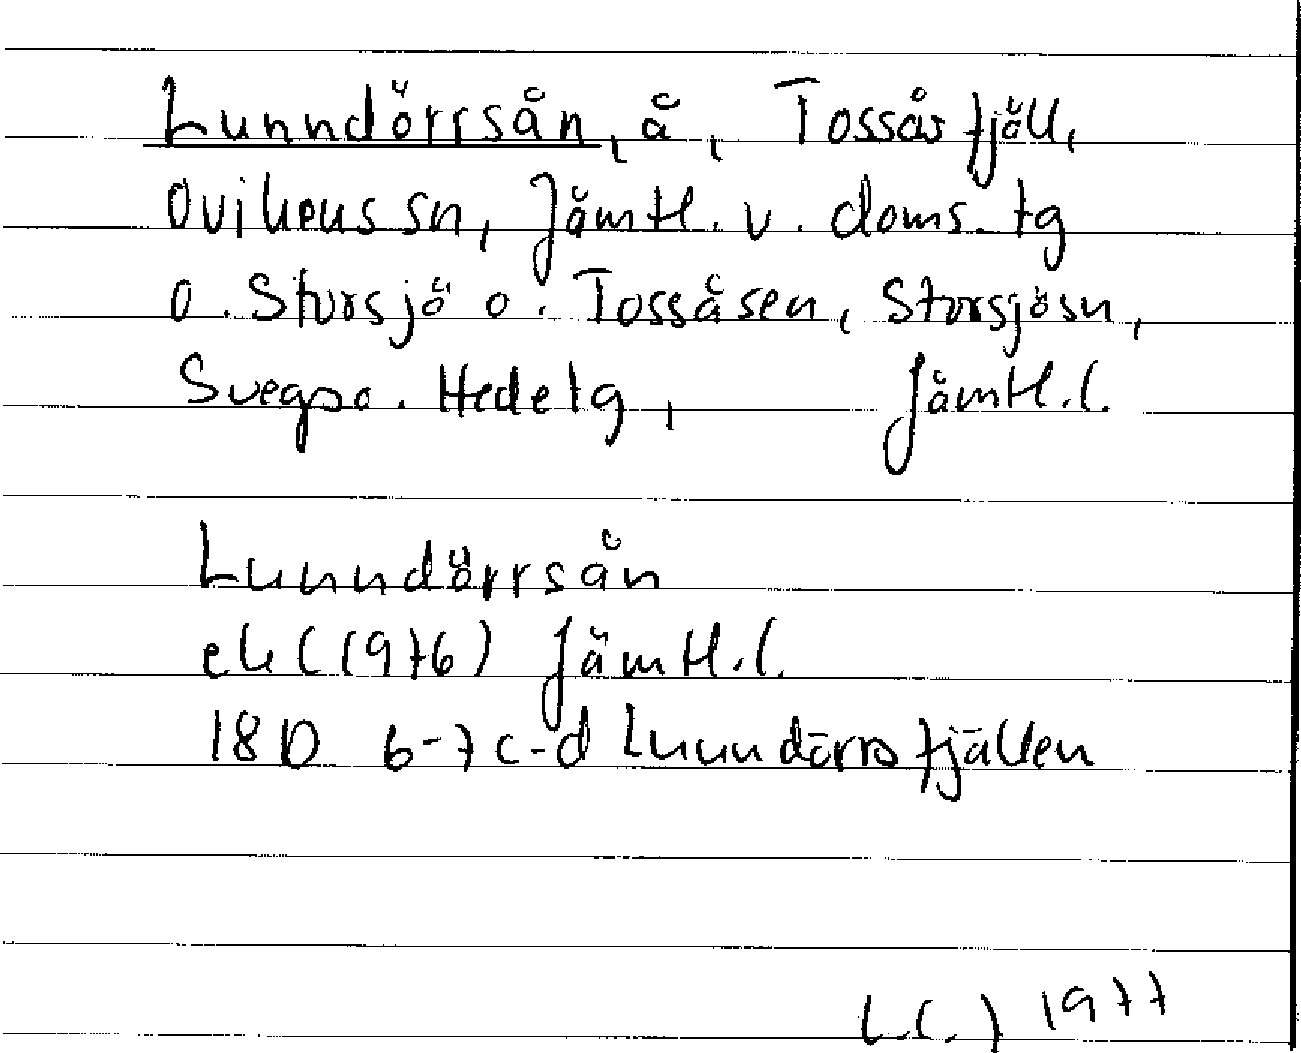 Lunndörrsån, å, Tossåsfjäll,
Ovikens sn, Jämtl. v. doms. tg
o. Storsjö o. Tossåsen, Storsjö sn,
Svegs o. Hede tg, Jämtl. l.
Lunndörrsån
ek (1976) Jämtl. l.
18D 6-7 c-d Lunndörrsfjällen
1977